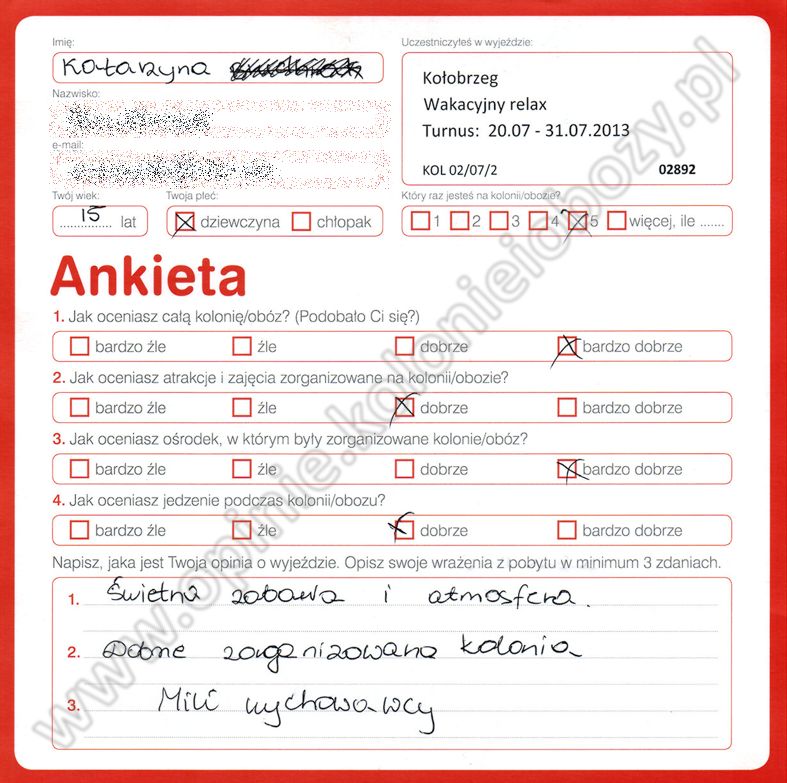 Imię:
Katarzyna
Uczestniczyłeś w wyjeździe:
Kołobrzeg
Wakacyjny relax
Turnus: 20.07 - 31.07.2013
KOL 02/07/2 02892
Nazwisko:
e-mail:
Twój wiek:
15 lat
Twoja płeć:
dziewczyna chłopak
Który raz jesteś na kolonii/obozie?
1 2 3 4 5 więcej, ile .......
Ankieta
1. Jak oceniasz całą kolonię/obóz? (Podobało Ci się?)
bardzo źle źle dobrze bardzo dobrze
2. Jak oceniasz atrakcje i zajęcia zorganizowane na kolonii/obozie?
bardzo źle źle dobrze bardzo dobrze
3. Jak oceniasz ośrodek, w którym były zorganizowane kolonie/obóz?
bardzo źle źle dobrze bardzo dobrze
4. Jak oceniasz jedzenie podczas kolonii/obozu?
bardzo źle źle dobrze bardzo dobrze
Napisz, jaka jest Twoja opinia o wyjeździe. Opisz swoje wrażenia z pobytu w minimum 3 zdaniach.
1. Świetna zabawa i atmosfera.
2. Dobrze zorganizowana kolonia
3. Mili wychowawcy
www.opinie.kolonieiobozy.pl